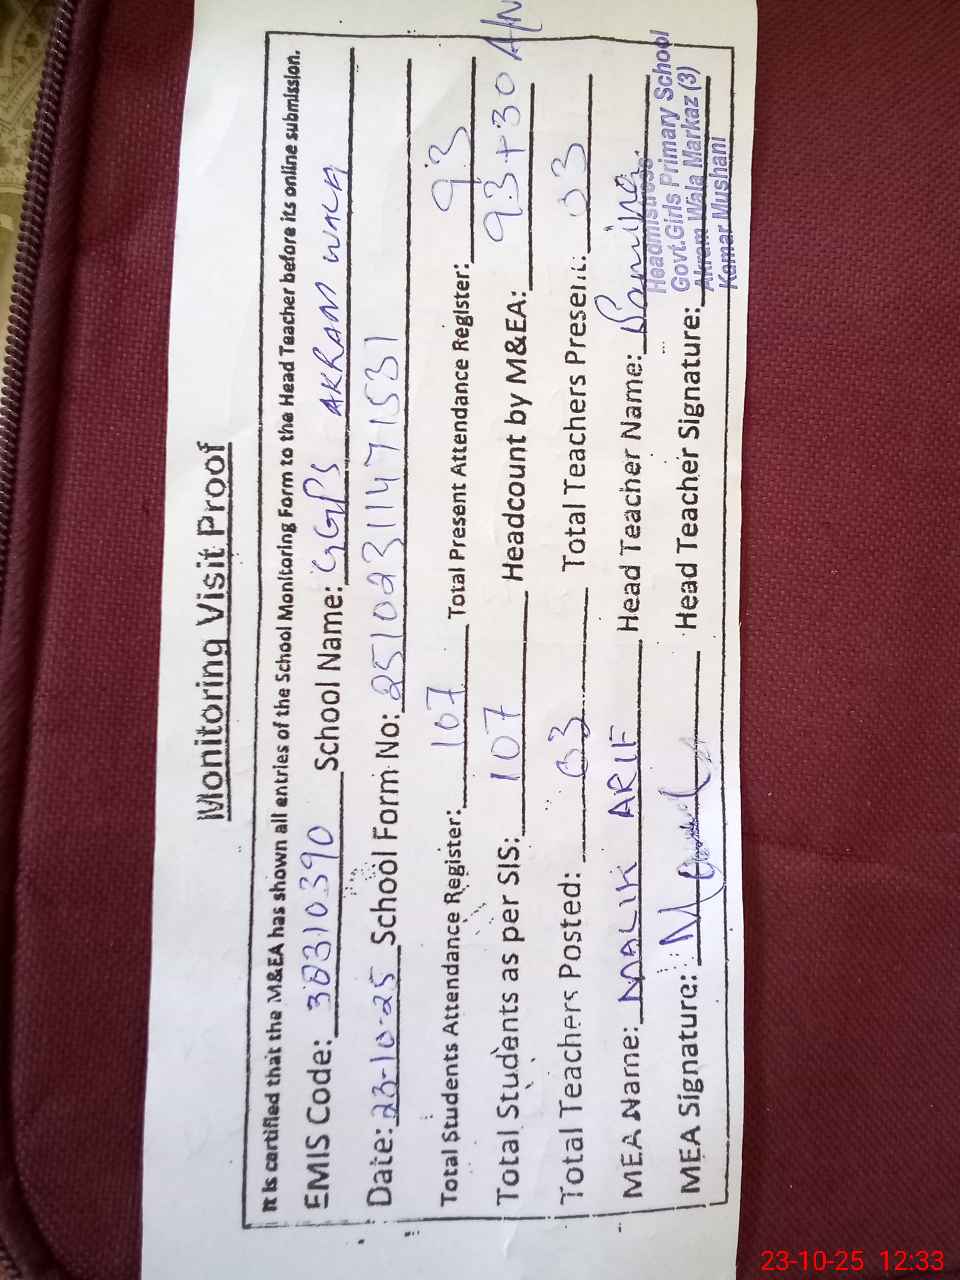 Monitoring Visit Proof
It is certified that the M&EA has shown all entries of the School Monitoring Form to the Head Teacher before its online submission.
EMIS Code: 38310390 School Name: GGPS AKRAM WALA
Date: 23-10-25 School Form No: 25102311471531
Total Students Attendance Register: 107 Total Present Attendance Register: 93
Total Students as per SIS: 107 Headcount by M&EA: 93+30 A/N
Total Teachers Posted: 03 Total Teachers Present: 03
MEA Name: MALIK ARIF Head Teacher Name:
MEA Signature: Head Teacher Signature:
Headmistress
Govt.Girls Primary School
Akram Wala Markaz (3)
Kamar Mushani
23-10-25 12:33